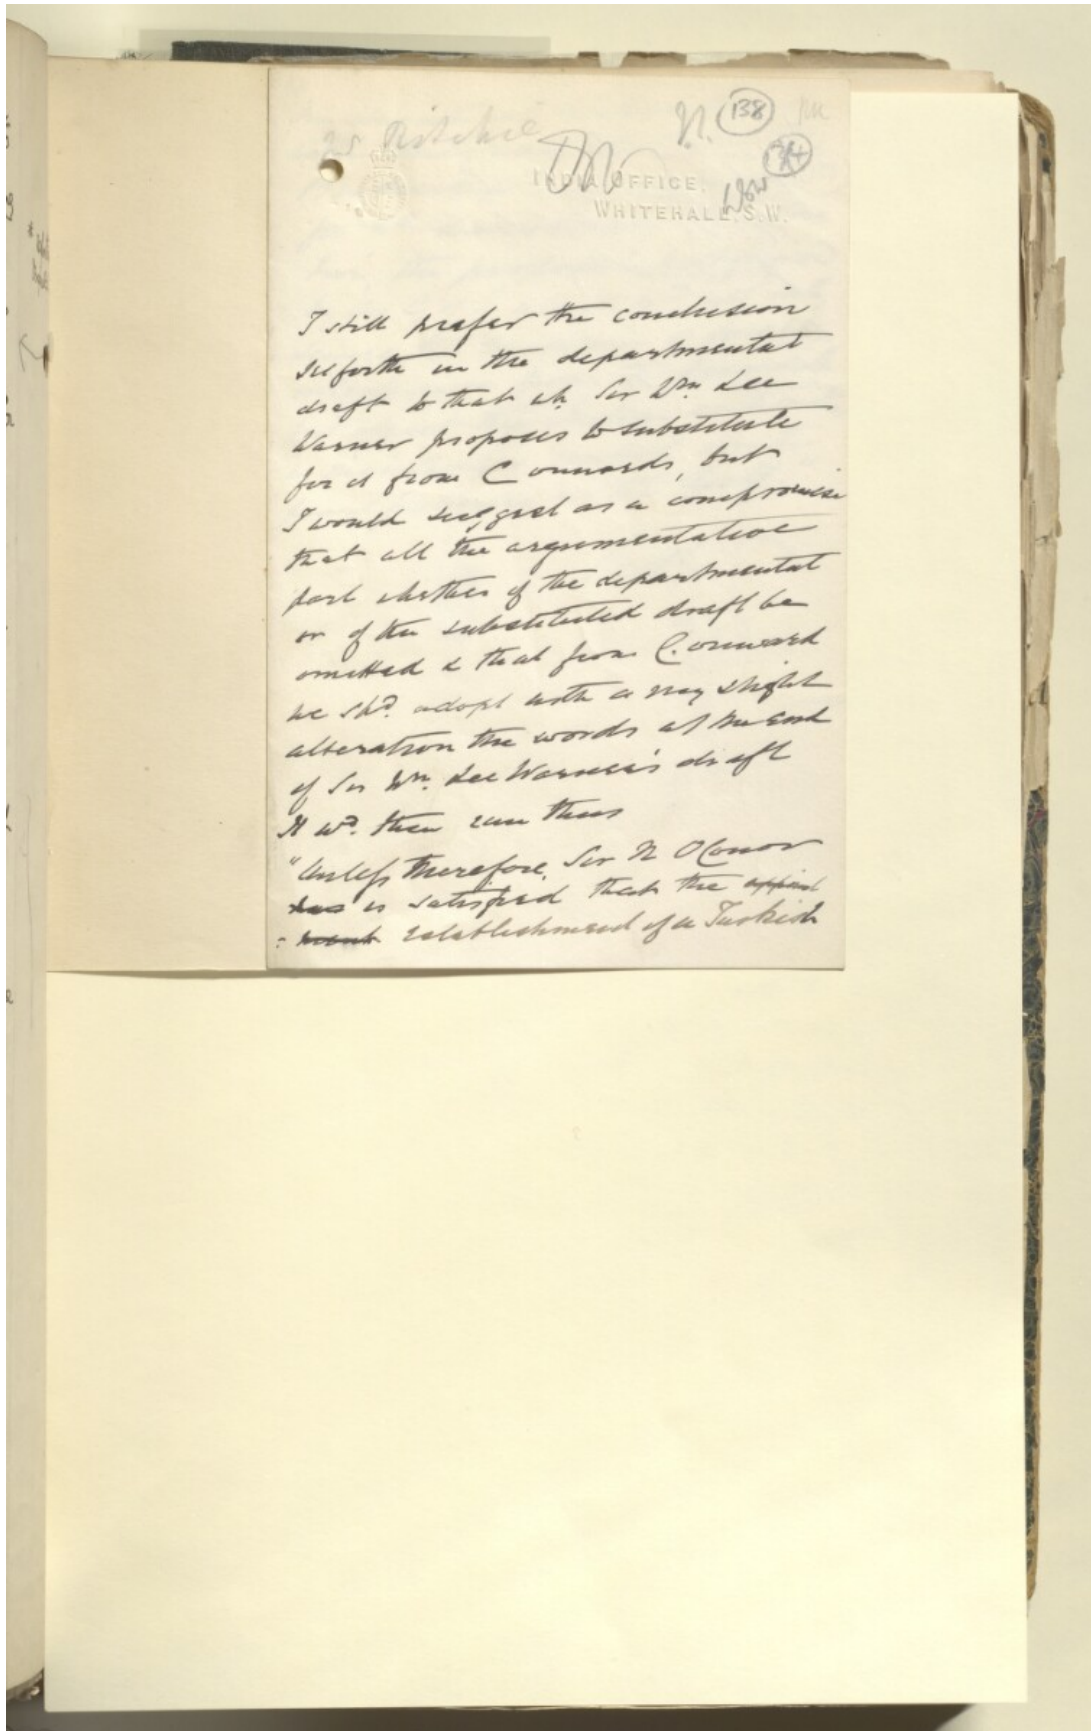 Ritchie
138
INDIA OFFICE,
WHITEHALL. S.W.
I still prefer the conclusion
set forth in the departmental
draft to that wh. Sir Wm. Lee
Warner proposes to substitute
for it from C onwards, but
I would suggest as a compromise
that all the argumentative
part whether of the departmental
or of the substituted draft be
omitted & that from C. onward
we shd. adopt with a very slight
alteration the words at the end
of Sir Wm. Lee Warner's draft
It wd. then run thus
"Unless therefore, Sir N OConor
has is satisfied that the appoint
-ment establishment of a Turkish